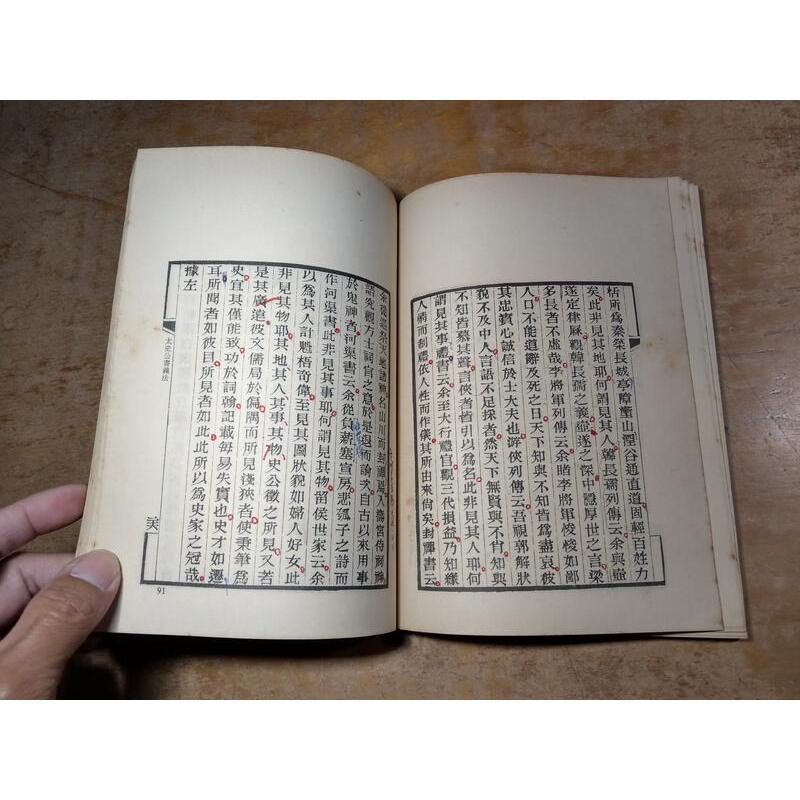 恬所爲秦築長城亭障塹山湮谷通直道固輕百姓力
矣此非見其地耶何謂見其人韓長孺列傳云余與壺
遂定律厤觀韓長孺之義壺遂之深中隱厚世之言梁
多長者不虛哉李將軍列傳云余睹李將軍悛悛如鄙
人口不能道辭及死之日天下知與不知皆爲盡哀彼
其忠實心誠信於士大夫也游俠列傳云吾視郭解狀
貌不及中人言語不足採者然天下無賢與不肖知與
不知皆慕其聲言俠者皆引以爲名此非見其人耶何
謂見其事禮書云余至大行禮官觀三代損益乃知緣
人情而制禮依人性而作儀其所由來尙矣封禪書云
余從巡祭天地諸神名山川而封禪焉入壽宮侍祠神
語究觀方士祠官之意於是退而論次自古以來用事
於鬼神者河渠書云余從負薪塞宣房悲瓠子之詩而
作河渠書此非見其事耶何謂見其物留侯世家云余
以爲其人計魁梧奇偉至見其圖狀貌如婦人好女此
非見其物耶其地其人其事其物史公徵之所見又若
是其廣遠彼文儒局於偏隅而所見淺狹者使秉筆爲
史宜其僅能致功於詞翰記載每易失實也史才如遷
耳所聞者如彼目所見者如此此所以爲史家之冠哉
據左
太史公書義法
91